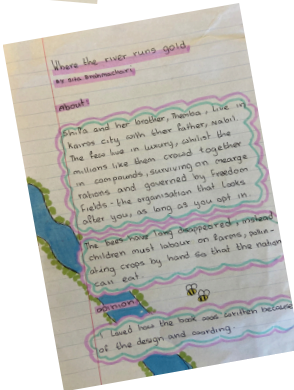 Where the river runs gold,
By Sita Brahmachari,
About:
Shifa and her brother, Themba, live in
Kairos city with their father, Nabil.
The few live in luxury, whilst the
millions like them crowd together
in compounds, surviving on mearge
rations and governed by freedom
fields - the organisation that looks
after you, as long as you opt in.
The bees have long disappeared, instead
children must labour on farms, pollin-
ating crops by hand so that the nation
can eat.
opinion:
I loved how the book was written because
of the design and wording.